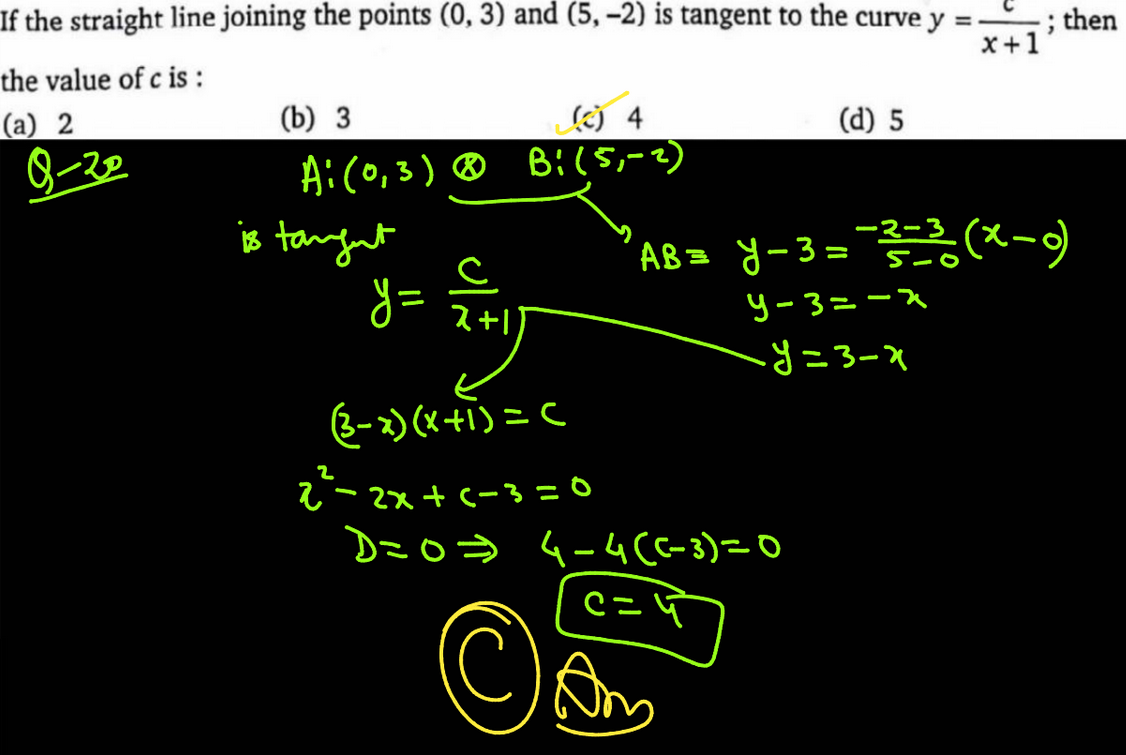 If the straight line joining the points (0, 3) and (5, –2) is tangent to the curve y = c/(x+1) ; then
the value of c is :
(a) 2 (b) 3 (c) 4 (d) 5
Q-20 A:(0,3) & B:(5,-2)
is tangent
AB ≡ y-3 = (-2-3)/(5-0) (x-0)
y-3 = -x
y = 3-x
y = c/(x+1)
(3-x)(x+1) = c
x²-2x+c-3=0
D=0 ⇒ 4-4(c-3)=0
c=4
C Ans